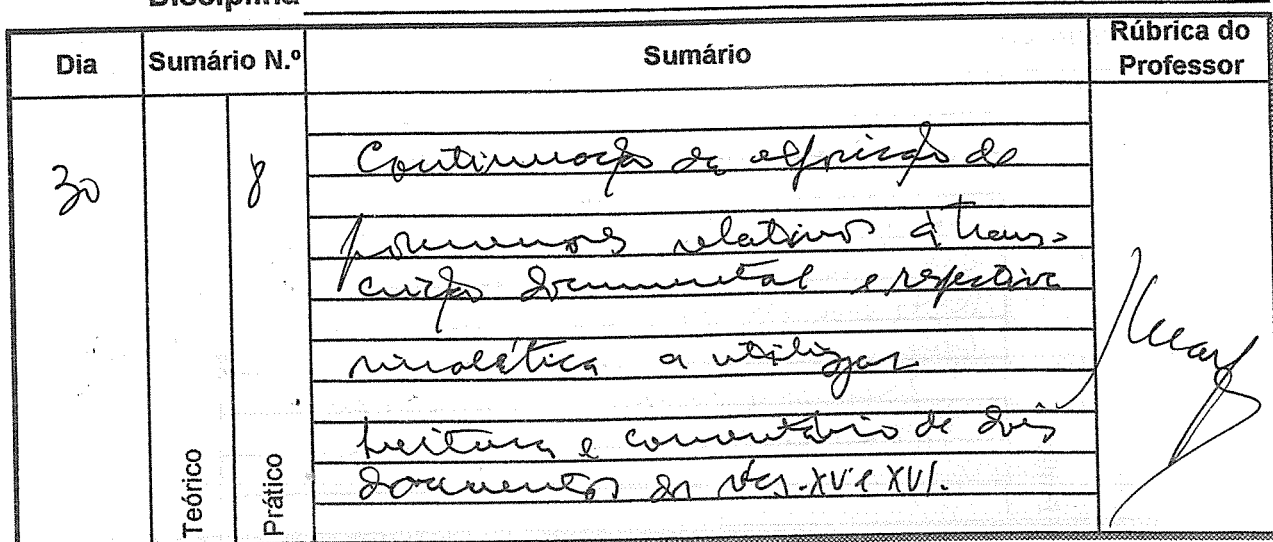 Disciplina
Dia
Sumário N.º
Sumário
Rúbrica do
Professor
30
8
Continuação da exposição de
pormenores relativos à trans-
crição documental e respectiva
sinalética a utilizar
Leitura e comentário de dois
documentos dos sécs. XV e XVI.
Teórico
Prático